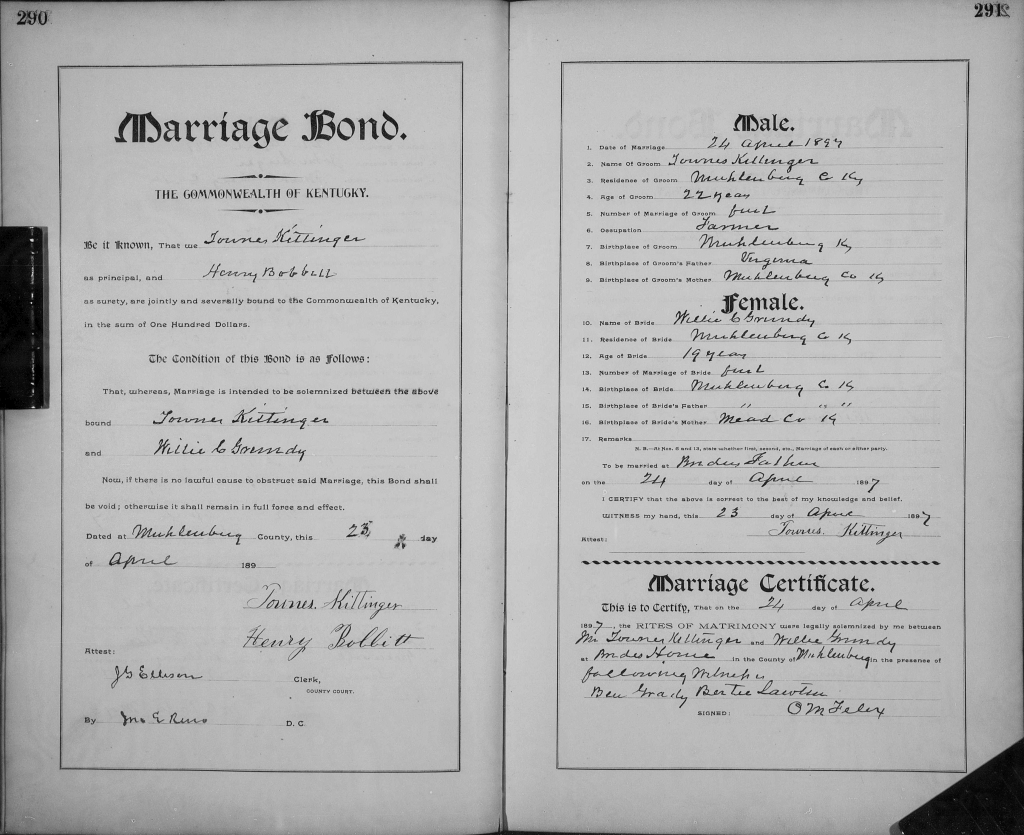 290
Marriage Bond.
THE COMMONWEALTH OF KENTUCKY.
Be it Known, That we Townes Kittinger
as principal, and Henry Bobbitt
as surety, are jointly and severally bound to the Commonwealth of Kentucky,
in the sum of One Hundred Dollars.
The Condition of this Bond is as Follows:
That, whereas, Marriage is intended to be solemnized between the above
bound Townes Kittinger
and Willie C Grundy
Now, if there is no lawful cause to obstruct said Marriage, this Bond shall
be void; otherwise it shall remain in full force and effect.
Dated at Muhlenburg County, this 23, day
of April 189
Townes. Kittinger
Henry Bobbitt
Attest:
JG Ellison Clerk,
COUNTY COURT.
By Jno E Reno D. C.
291
Male.
1. Date of Marriage 24 April 1897
2. Name Of Groom Townes Kittinger
3. Residence of Groom Muhlenburg C Ky
4. Age of Groom 22 years
5. Number of Marriage of Groom first
6. Occupation Farmer
7. Birthplace of Groom Muhlenburg Ky
8. Birthplace of Groom's Father Virginia
9. Birthplace of Groom's Mother Muhlenburg Co Ky
Female.
10. Name of Bride Willie C Grundy
11. Residence of Bride Muhlenburg Co Ky
12. Age of Bride 19 years
13. Number of Marriage of Bride first
14. Birthplace of Bride Muhlenburg Co Ky
15. Birthplace of Bride's Father " " "
16. Birthplace of Bride's Mother Mead Co Ky
17. Remarks
N. B.—At Nos. 5 and 13, state whether first, second, etc., Marriage of each or either party.
To be married at Brides Father
on the 24 day of April 1897
I CERTIFY that the above is correct to the best of my knowledge and belief.
WITNESS my hand, this 23 day of April 1897
Townes. Kittinger
Attest:
Marriage Certificate.
This is to Certify, That on the 24 day of April
1897, the RITES OF MATRIMONY were legally solemnized by me between
Mr Townes Kittinger and Willie Grundy
at Brides Home in the County of Muhlenburg in the presence of
following Witness
Ben Grady Bertie Lawton
SIGNED: O M Felix